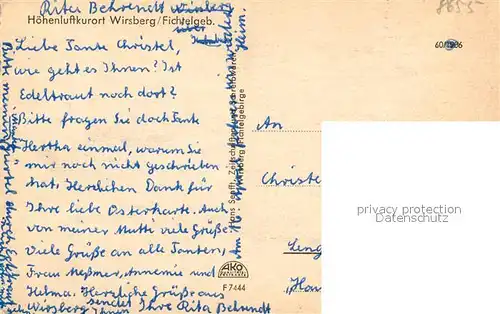 Rita Behrendt Wirsberg
über
Höhenluftkurort Wirsberg/Fichtelgeb.
8655
60/1986
Liebe Tante Christel,
wie geht es Ihnen? Ist
Edeltraut noch dort?
Bitte fragen Sie doch Tante
Hertha einmal, warum Sie
mir noch nicht geschrieben
hat. Herzlichen Dank für
Ihre liebe Osterkarte. Auch
von meiner Mutti viele Grüße.
Viele Grüße an alle Tanten,
Frau Meßmer, Annemie und
Helma. Herzliche Grüße aus
Wirsberg sendet Ihre Rita Behrendt
Ihnen
Am 16.
wieder
Heim.
Bitte
An
Christe
Leng
AKO
F 7444
privacy protection
watermark